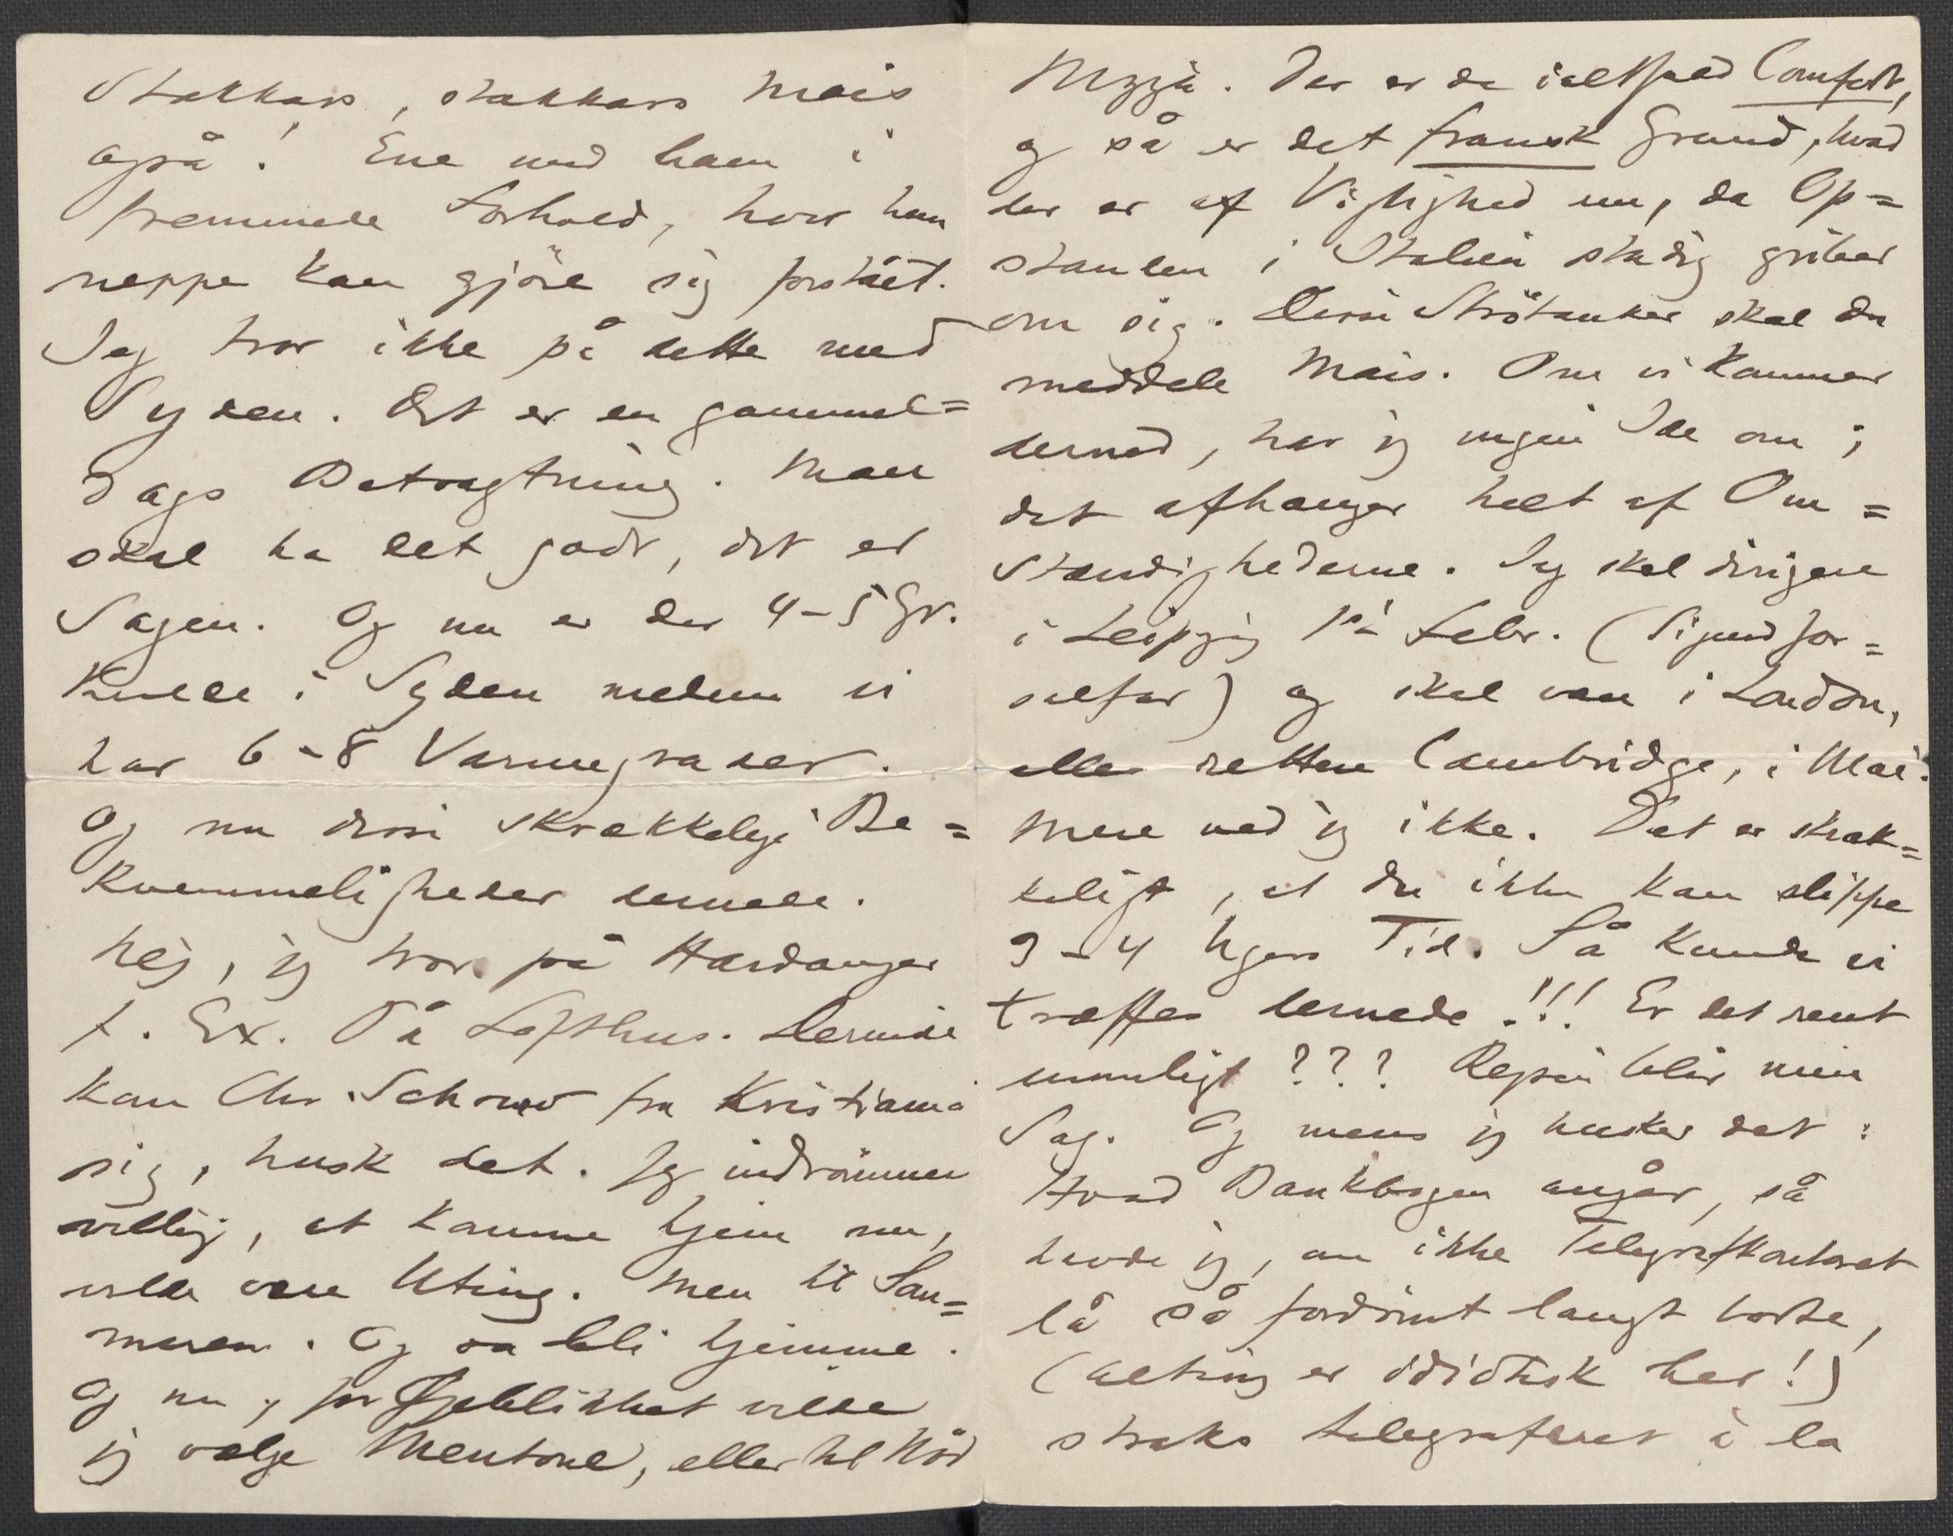 Stakkars, stakkars Mais
også! Ene med ham i
fremmede Forhold, hvor han
neppe kan gjöre sig forstået.
Jeg tror ikke på dette med
Syden. Det er en gammel=
dags Betragtning. Man
skal ha det godt, det er
Sagen. Og nu er der 4-5 Gr.
Kulde i Syden medens vi
har 6-8 Varmegrader.
Og nu disse skrækkelige Be=
kvemmeligheder dernede.
Nej, jeg tror på Hardanger
f. Ex. På Lofthus. Derinde
kan Chr. Schou fra Kristiania
sig, husk det. Jeg indrömmer
villig, at komme hjem nu,
vilde være Uting. Men til Som=
meren. Og saa bli hjemme.
Og nu, for Øjeblikket vilde
jeg vælge Mentone, eller til Nöd
Nizza. Der er da ialtfald Comfort,
og så er det fransk Grund, hvad
der er af Vigtighed nu, da Op=
standen i Italien stadig griber
om sig. Disse Strötanker skal du
meddele Mais. Om vi kommer
derned, har jeg ingen Ide om;
det afhænger helt af Om=
stændighederne. Jeg skal dirigere
i Leipzig 1ste Febr. (Sigurd Jor=
salfar) og skal være i London,
eller rettere Cambridge, i Mai.
Mere ved jeg ikke. Det er skræk=
keligt, at du ikke kan slippe
3-4 Ugers Tid. Så kunde vi
træffes dernede!!! Er det rent
umuligt??? Rejsen blir min
Sag. Og mens jeg husker det:
Hvad Bankbogen angår, så
havde jeg, om ikke Telegrafkontoret
lå så fordömt langt borte,
(alting er idiotisk her!)
straks telegraferet: la